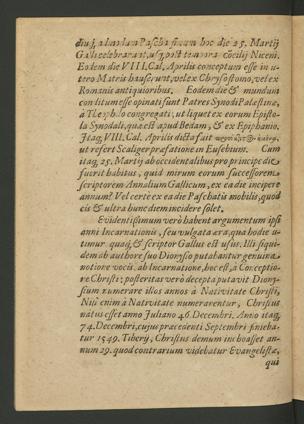 diu, a
Pascha
hoc die 25. Martij
Galli celebrarunt, usq; post tempora cōcilij Niceni.
Eodem die VIII. Cal. Aprilis conceptum esse in u-
tero Matris hauserunt, vel ex Chrysostomo, vel ex
Romanis antiquioribus. Eodem die & mundum
conditum esse opinati sunt Patres Synodi Palæstinæ,
à Theophilo congregati: ut liquet ex eorum Episto-
la Synodali, quæ est apud Bedam, & ex Epiphanio.
Itaq; VIII. Cal. Aprilis dicta fuit
ut refert Scaliger præfatione in Eusebium. Cum
itaq; 25. Martij ab occidentalibus pro principe die
fuerit habitus, quid mirum eorum successorem
scriptorem Annalium Gallicum, ex ea die incipere
annum? Vel certe ex ea die Paschatis mobili, quod
cis & ultra hunc diem incidere solet.
Evidentissimum verò habent argumentum ipsi
anni Incarnationis, seu vulgata æra, qua hodie u-
timur quaq; & scriptor Gallus est usus. Illi siqui-
dem ab authore suo Dionysio putabantur genuina
notione vocis, ab Incarnatione, hoc est, à Conceptio-
ne Christi; posteritas verò decepta putavit Diony-
sium numerare illos annos à Nativitate Christi.
Nisi enim à Nativitate numerarentur, Christus
natus esset anno Juliano 46. Decembri. Anno itaq;
74. Decembri, cujus præcedenti Septembri finieba-
tur 1549. Tiberij, Christus demum inchoasset an-
num 29. quod contrarium videbatur Evangelistæ,
qui